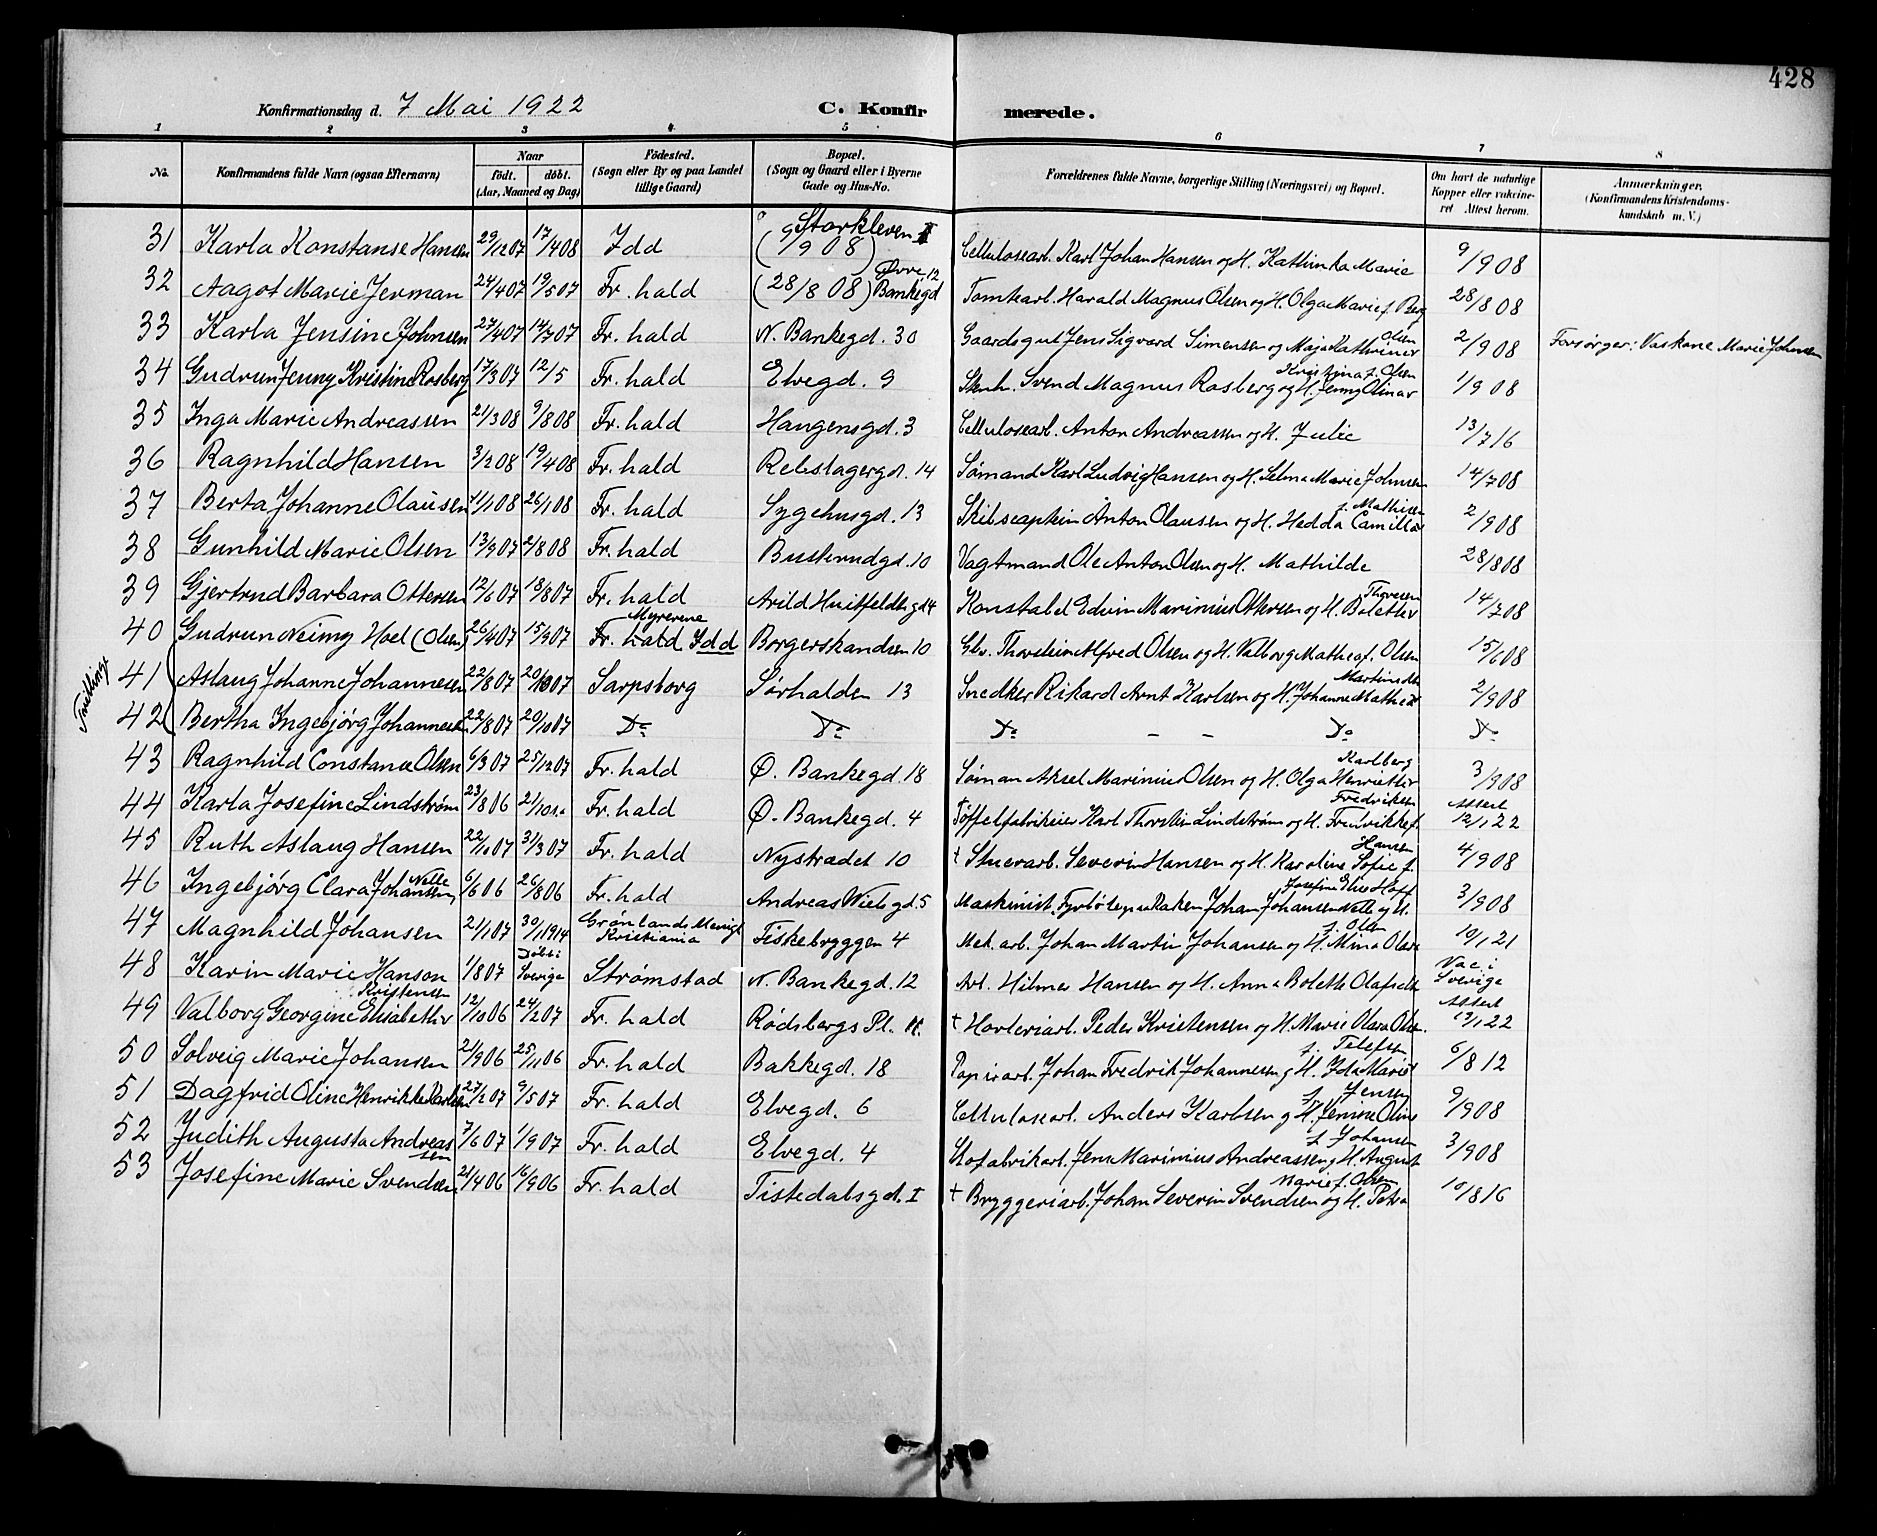 428
Konfirmationsdag d. 7 Mai 1922 C. Konfirmerede.
1 2 3 4 5 6 7 8
No. Konfirmandens fulde Navn (ogsaa Efternavn) Naar født. døbt. (Aar, Maaned og Dag) Fødested. (Sogn eller By og paa Landet tillige Gaard) Bopæl. (Sogn og Gaard eller i Byerne Gade og Hus-No. Forældrenes fulde Navne, borgerlige Stilling (Næringsvei) og Bopæl. Om havt de naturlige Kopper eller vakcineret Attest herom. Anmærkninger. (Konfirmandens Kristendomskundskab m. V.)
31 Karla Konstanse Hansen 29/12 07 17/4 08 Idd Storkleven II (9/9 08) Cellulosearb. Karl Johan Hansen og H. Kathinka Marie 9/9 08
32 Aagot Marie Jerman 24/4 07 19/5 07 Fr. hald (28/8 08) Øvre Bankegd 12 Tomtearb. Harald Magnus Olsen og H. Olga Marie f. Berg 28/8 08
33 Karla Jensine Johnsen 27/4 07 14/7 07 Fr. hald N. Bankegd. 30 Gaardsgut Jens Sigvard Simensen og Maja Kathrine Olsen 2/9 08 Forsørger: Vaskone Marie Johnsen
34 Gudrun Jenny Kristine Rosberg 17/3 07 12/5 Fr. hald Elvegd. 9 Stenh. Svend Magnus Rosberg og H. Jenny Olina Kristina f. Olsen 1/9 08
35 Inga Marie Andreassen 21/3 08 9/8 08 Fr. hald Haugensgd. 3 Cellulosearb. Anton Andreassen og H. Julie 13/7 16
36 Ragnhild Hansen 3/2 08 19/4 08 Fr. hald Rebslagergd. 14 Sømand Karl Ludvig Hansen og H. Selma Marie Johnsen 14/7 08
37 Berta Johanne Olausen 11/1 08 26/1 08 Fr. hald Sygehusgd. 13 Skibscaptein Anton Olausen og H. Hedda Camilla f. Mathisen 2/9 08
38 Gunhild Marie Olsen 13/9 07 2/8 08 Fr. hald Buskerudgd. 10 Vagtmand Ole Anton Olsen og H. Mathilde 28/8 08
39 Gjertrud Barbara Ottersen 12/6 07 18/8 07 Fr. hald Arild Huitfeldts gd 4 Konstabel Edvin Marinius Ottersen og H. Bolette Thoresen 14/7 08
40 Gudrun Neimy Hoel (Olsen) 26/4 07 15/9 07 Fr. hald Myrerene Idd Borgerskandsen 10 Gbr. Thorstein Alfred Olsen og H. Valborg Mathea f. Olsen 15/6 08
Tvillinge
41 Aslaug Johanne Johannesen 22/8 07 20/10 07 Sarpsborg Sørhalden 13 Snedker Rikard Arnt Karlsen og H. Johanne Mathea Martinsdtr 2/9 08
42 Bertha Ingebjørg Johannesen 22/8 07 20/10 07 Do Do Do - - Do Do
43 Ragnhild Constance Olsen 6/3 07 25/12 07 Fr. hald Ø. Bankegd. 18 Søman Aksel Marinius Olsen og H. Olga Henriette Karlberg 3/9 08
44 Karla Josefine Lindstrøm 23/8 06 21/10 s.a. Fr. hald Ø. Bankegd. 4 Tøffelfabrikeier Karl Thorstein Lindstrøm og H. Fredrikke f. Fredriksen Attest 12/1 22
45 Ruth Aslaug Hansen 22/10 07 31/3 07 Fr. hald Nystrædet 10 † Stuerarb. Severin Hansen og H. Karoline Sofie f. Hansen 4/9 08
46 Ingebjørg Clara Johansen Nelle 6/6 06 26/8 06 Fr. hald Andreas Wiels gd. 5 Maskinist Johan Johansen Nelle og H. Josefine Elise Hoff 3/9 08
47 Magnhild Johansen 21/1 07 30/1 1914 Grønlands Menigh Kristiania Fiskebryggen 4 Mek. arb. Johan Martin Johansen og H. Mina Olava f. Olsen 10/1 21
48 Karin Marie Hanson 1/8 07 Døbt i Sverige Strømstad N. Bankegd. 12 Arb. Hilmer Hansen og H. Anna Bolette Olafsdtr Vac i Sverige
49 Valborg Georgine Elisabeth Kristensen 12/10 06 24/2 07 Fr. hald Rødsbergs Pl. † Hovleriarb. Peder Kristensen og H. Marie Olava Olsen Attest 13/1 22
50 Solveig Marie Johansen 21/9 06 25/11 06 Fr. hald Bakkegd. 18 Papirarb. Johan Fredrik Johannesen og H. Ida Marie f. Tellefsen 6/8 12
51 Dagfrid Oline Henrikke Karlsen 27/2 07 9/5 07 Fr. hald Elvegd. 6 Cellulosearb. Anders Karlsen og H. Jensine Oline f. Jensen 9/9 08
52 Judith Augusta Andreassen 7/6 07 1/9 07 Fr. hald Elvegd. 4 Skofabrikarb. Jens Marinius Andreassen og H. August f. Johansen 3/9 08
53 Josefine Marie Svendsen 21/4 06 16/9 06 Fr. hald Tistedalsgd. I † Bryggeriarb. Johan Severin Svendsen og H. Petra Marie f. Olsen 10/8 16